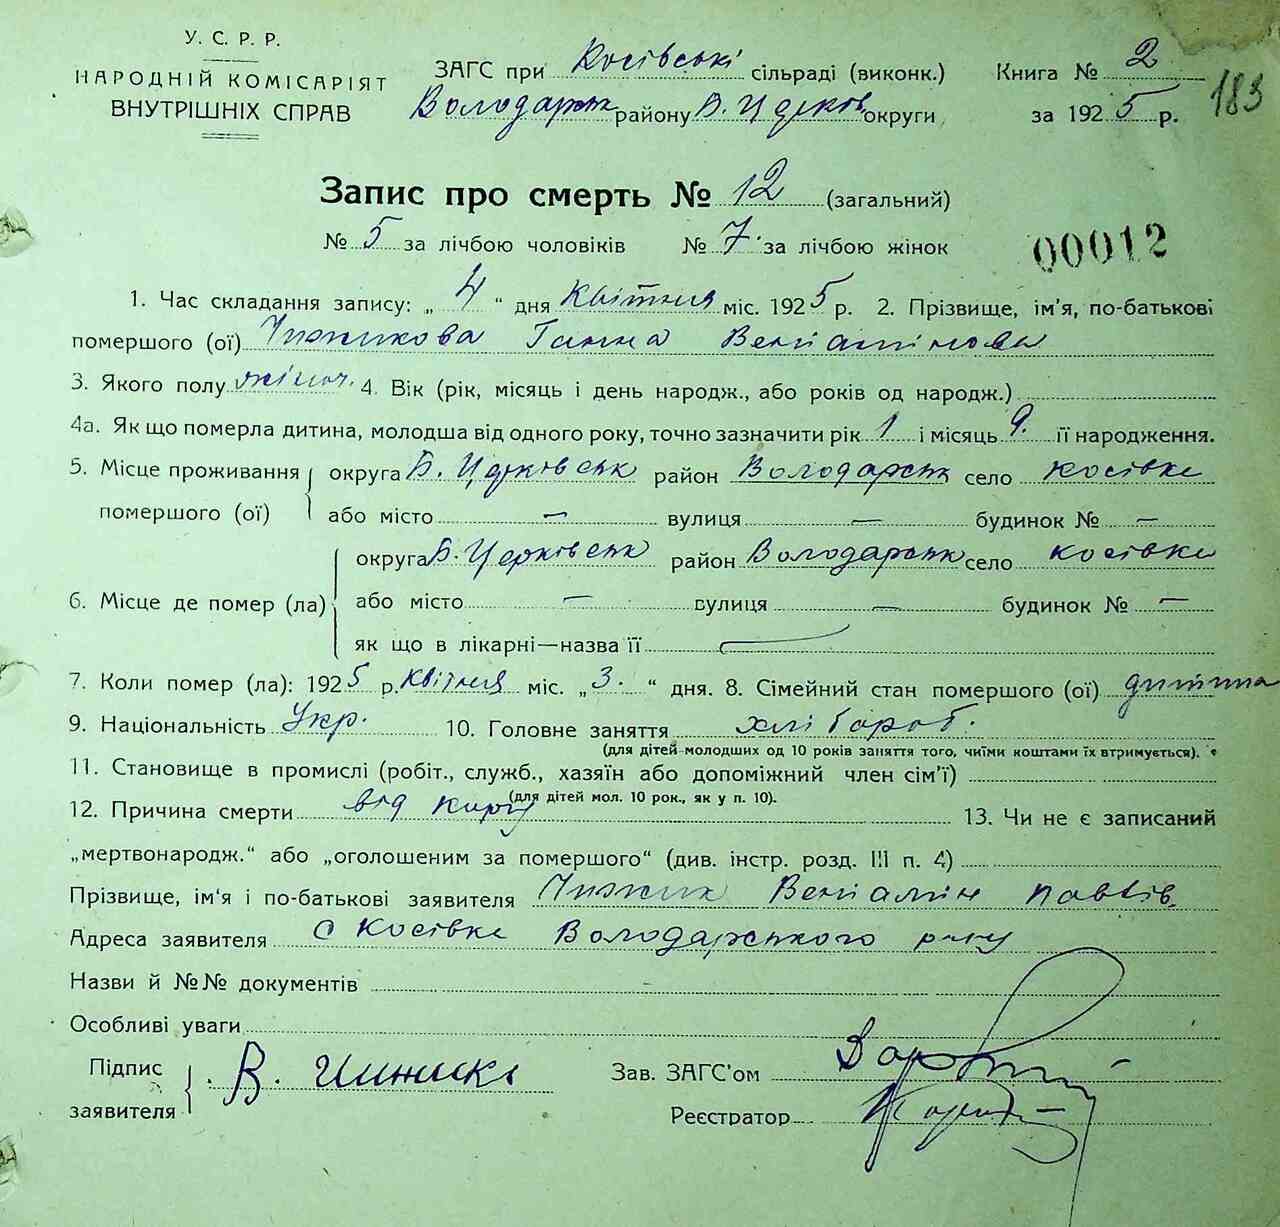 У. С. Р. Р.
НАРОДНІЙ КОМІСАРІЯТ
ВНУТРІШНІХ СПРАВ
ЗАГС при Косівські сільраді (виконк.)
Володарськ району Б. Цдеков округи
Книга № 2
за 1925 р.
183
Запис про смерть № 12 (загальний)
№ 5 за лічбою чоловіків № 7. за лічбою жінок
00012
1. Час складання запису: „ 4 “ дня Квітния міс. 1925 р. 2. Прізвище, ім'я, по-батькові
помершого (ої) Чижикова Ганна Веніамінова
3. Якого полу жіноч. 4. Вік (рік, місяць і день народж., або років од народж.)
4а. Як що померла дитина, молодша від одного року, точно зазначити рік 1 і місяць 9. її народження.
5. Місце проживання помершого (ої) округа Б. Цдрківськ район Володарськ село Косівке
або місто — вулиця — будинок № —
6. Місце де помер (ла) округа Б. Церківськ район Володарськ село косівке
або місто — вулиця — будинок № —
як що в лікарні—назва її —
7. Коли помер (ла): 1925 р. квітния міс. „ 3. “ дня. 8. Сімейний стан помершого (ої) дитина
9. Національність Укр. 10. Головне заняття хлібороб.
(для дітей молодших од 10 років заняття того, чиїми коштами їх втримується).
11. Становище в промислі (робіт., служб., хазяїн або допоміжний член сім'ї)
(для дітей мол. 10 рок., як у п. 10).
12. Причина смерти від кору 13. Чи не є записаний
„мертвонародж.“ або „оголошеним за помершого“ (див. інстр. розд. III п. 4)
Прізвище, ім'я і по-батькові заявителя Чижик Веніамін Павлів.
Адреса заявителя с Косівке Володарського р-ну
Назви й №№ документів
Особливі уваги
Підпис заявителя В. Чижик
Зав. ЗАГС'ом
Реєстратор